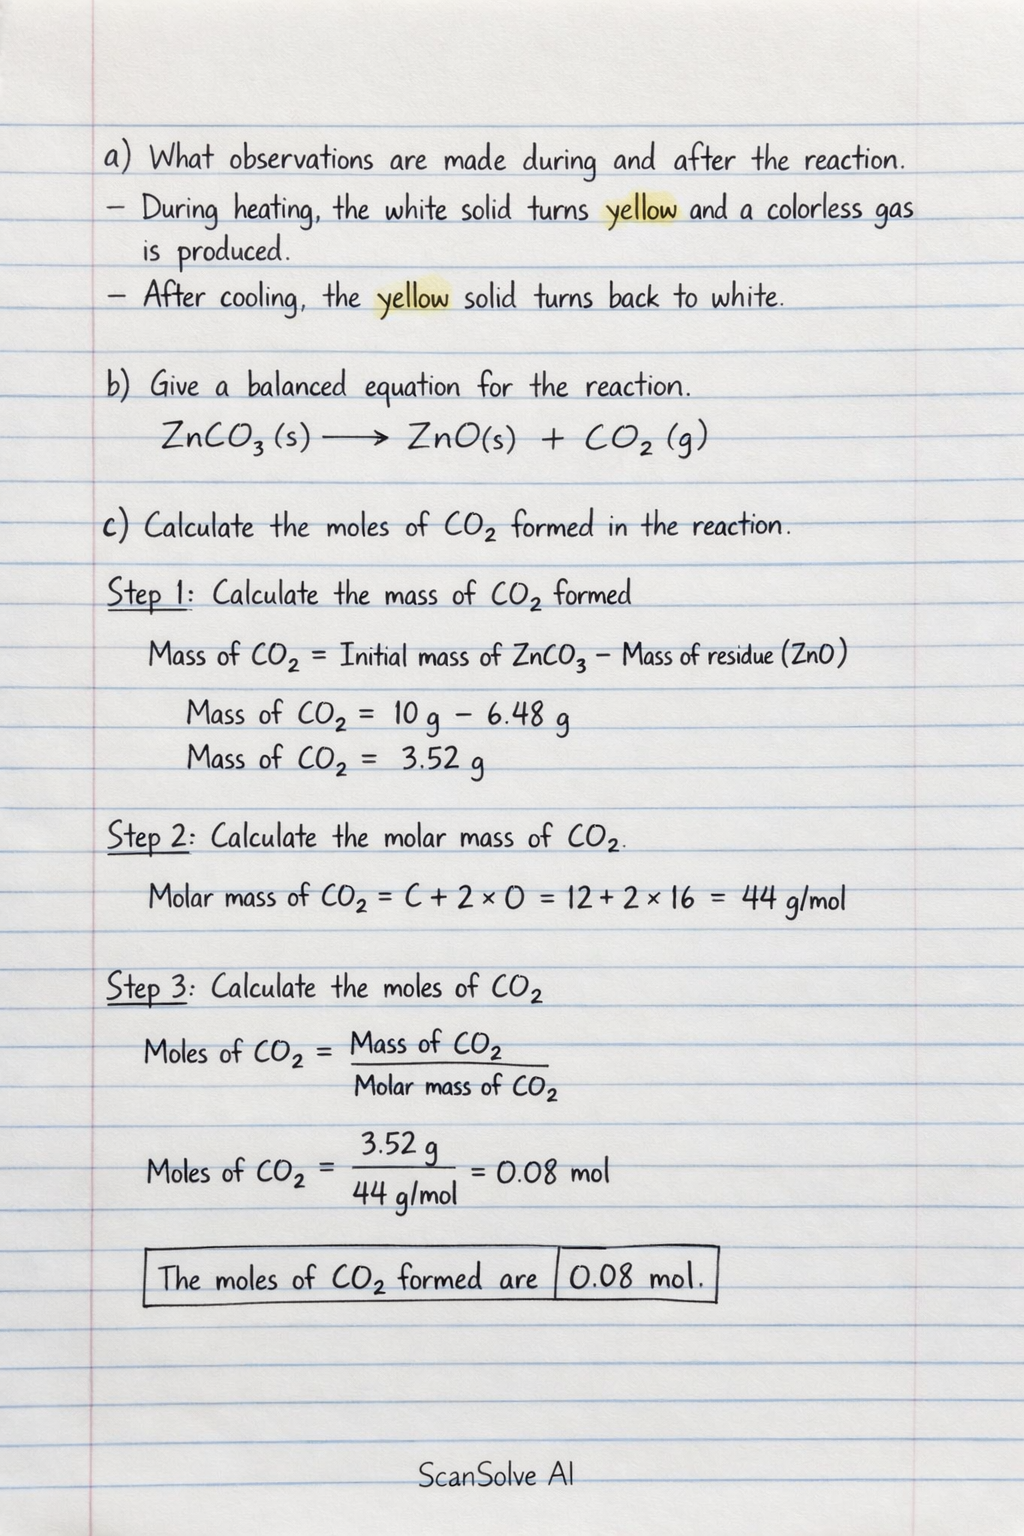 a) What observations are made during and after the reaction.
– During heating, the white solid turns yellow and a colorless gas
is produced.
– After cooling, the yellow solid turns back to white.
b) Give a balanced equation for the reaction.
ZnCO₃ (s) ⟶ ZnO(s) + CO₂ (g)
c) Calculate the moles of CO₂ formed in the reaction.
Step 1: Calculate the mass of CO₂ formed
Mass of CO₂ = Initial mass of ZnCO₃ – Mass of residue (ZnO)
Mass of CO₂ = 10 g – 6.48 g
Mass of CO₂ = 3.52 g
Step 2: Calculate the molar mass of CO₂.
Molar mass of CO₂ = C + 2 × O = 12 + 2 × 16 = 44 g/mol
Step 3: Calculate the moles of CO₂
Moles of CO₂ = Mass of CO₂
Molar mass of CO₂
Moles of CO₂ = 3.52 g
44 g/mol = 0.08 mol
The moles of CO₂ formed are 0.08 mol.
ScanSolve AI